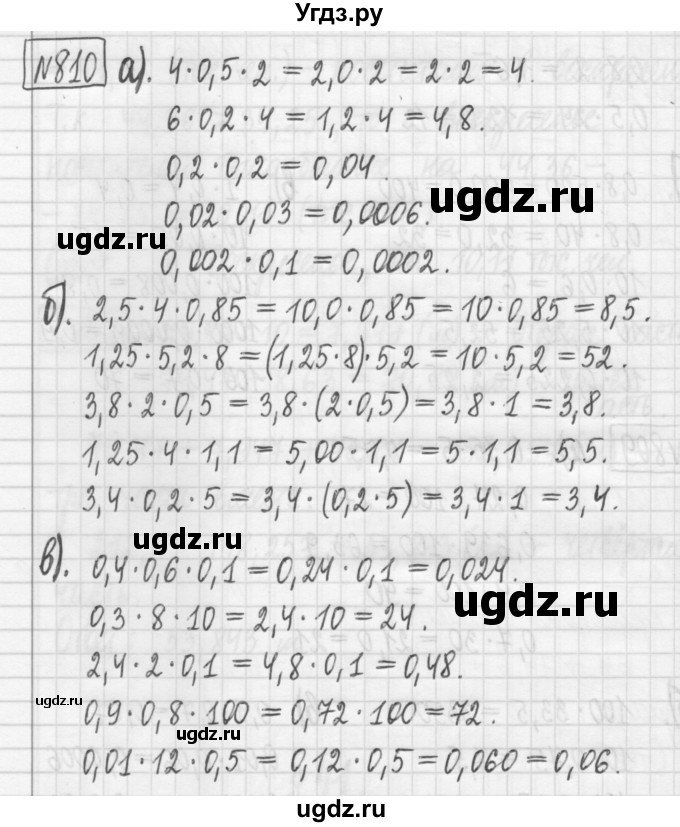 Угдз.ру
№810 а). 4·0,5·2 = 2,0·2 = 2·2 = 4.
6·0,2·4 = 1,2·4 = 4,8.
0,2·0,2 = 0,04.
ugdz.ru
0,02·0,03 = 0,0006.
ugdz.ru
0,002·0,1 = 0,0002.
б). 2,5·4·0,85 = 10,0·0,85 = 10·0,85 = 8,5.
1,25·5,2·8 = (1,25·8)·5,2 = 10·5,2 = 52.
3,8·2·0,5 = 3,8·(2·0,5) = 3,8·1 = 3,8.
1,25·4·1,1 = 5,00·1,1 = 5·1,1 = 5,5.
3,4·0,2·5 = 3,4·(0,2·5) = 3,4·1 = 3,4.
ugdz.ru
в). 0,4·0,6·0,1 = 0,24·0,1 = 0,024.
ugdz.ru
0,3·8·10 = 2,4·10 = 24.
2,4·2·0,1 = 4,8·0,1 = 0,48.
ugdz.ru
0,9·0,8·100 = 0,72·100 = 72.
ugdz.ru
0,01·12·0,5 = 0,12·0,5 = 0,060 = 0,06.
ugdz.ru